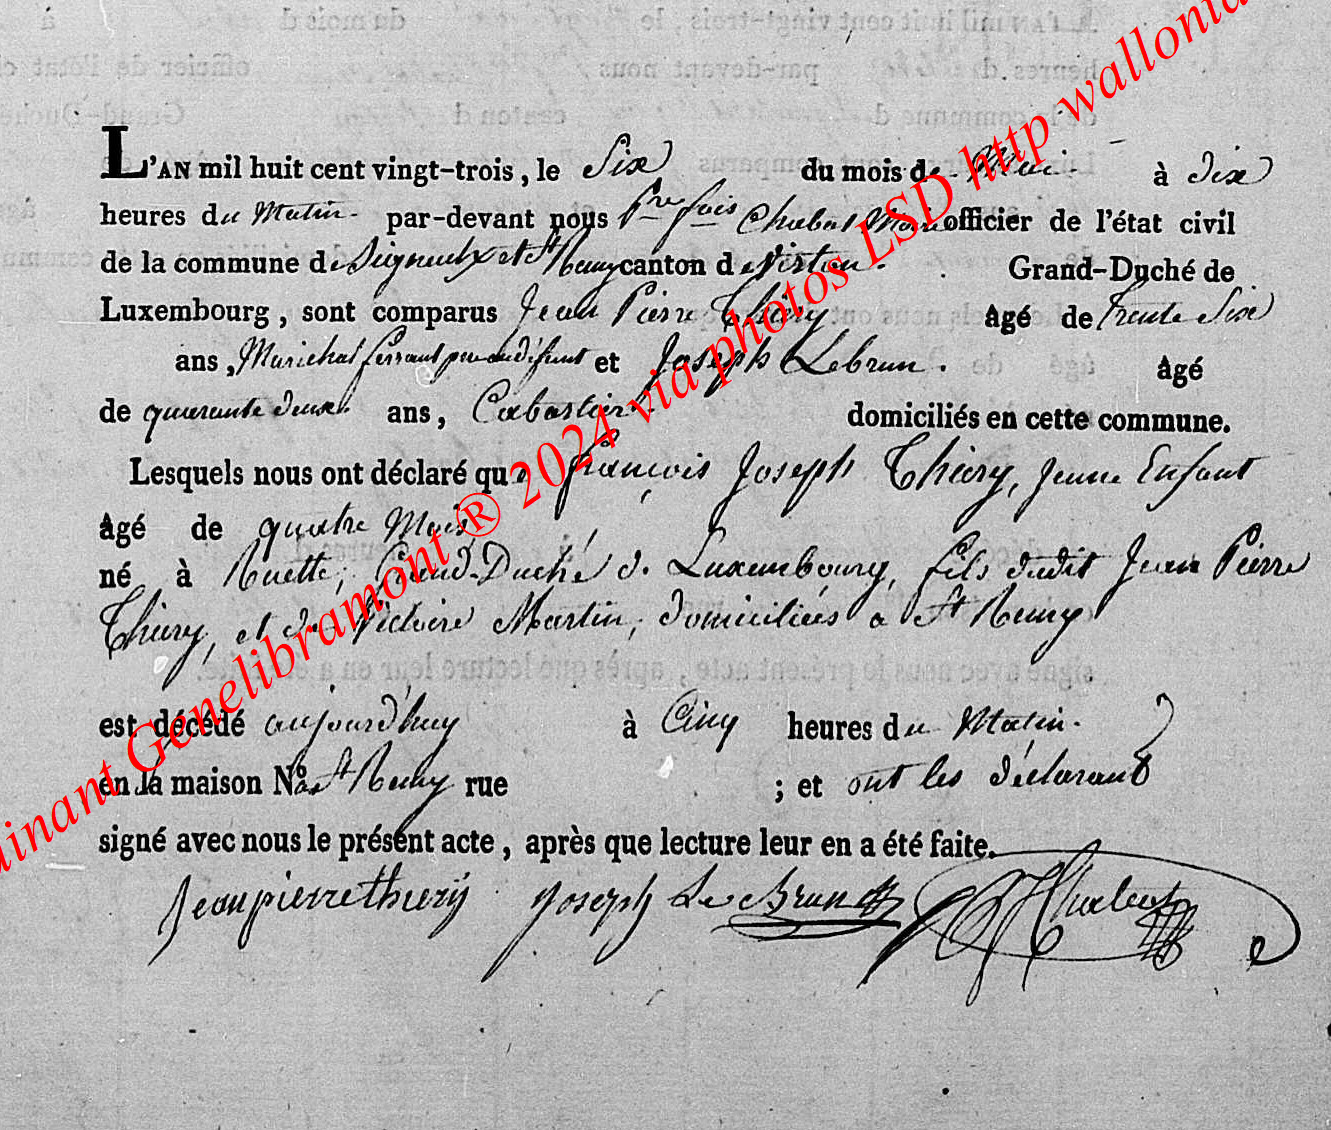 L'AN mil huit cent vingt-trois, le Six du mois de Mai à dix
heures du Matin. par-devant nous Pre fois Chabot Maire officier de l'état civil
de la commune de Signeulx et St Remy canton de Virton. Grand-Duché de
Luxembourg, sont comparus Jean Pierre Thiery Agé de trente Six
ans, Marichal ferrant et Joseph Lebrun. Agé
de quarante deux ans, Cabartier domiciliés en cette commune.
Lesquels nous ont déclaré que françois Joseph Thiery, jeune Enfant
Agé de quatre Mois,
né à Ruette, Grand-Duché de Luxembourg, fils dudit Jean Pierre
Thiery, et de Victoire Martin, domiciliées a St Remy
est décédé aujourd'huy à Cinq heures du Matin.
en la maison No. St Remy rue ; et ont les déclarants
signé avec nous le présent acte, après que lecture leur en a été faite.
Jeanpierrethiery Joseph LeBrun
inant Genelibramont ® 2024 via photos LSD http wallonia